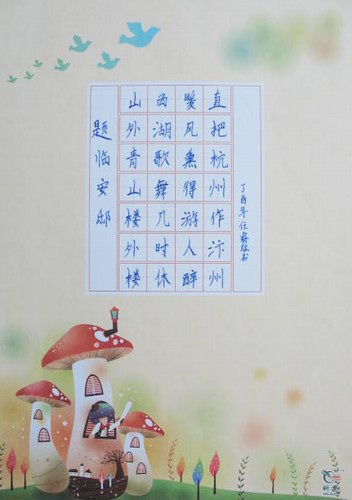 题临安邸
山外青山楼外楼
西湖歌舞几时休
暖风熏得游人醉
直把杭州作汴州
丁酉年任书